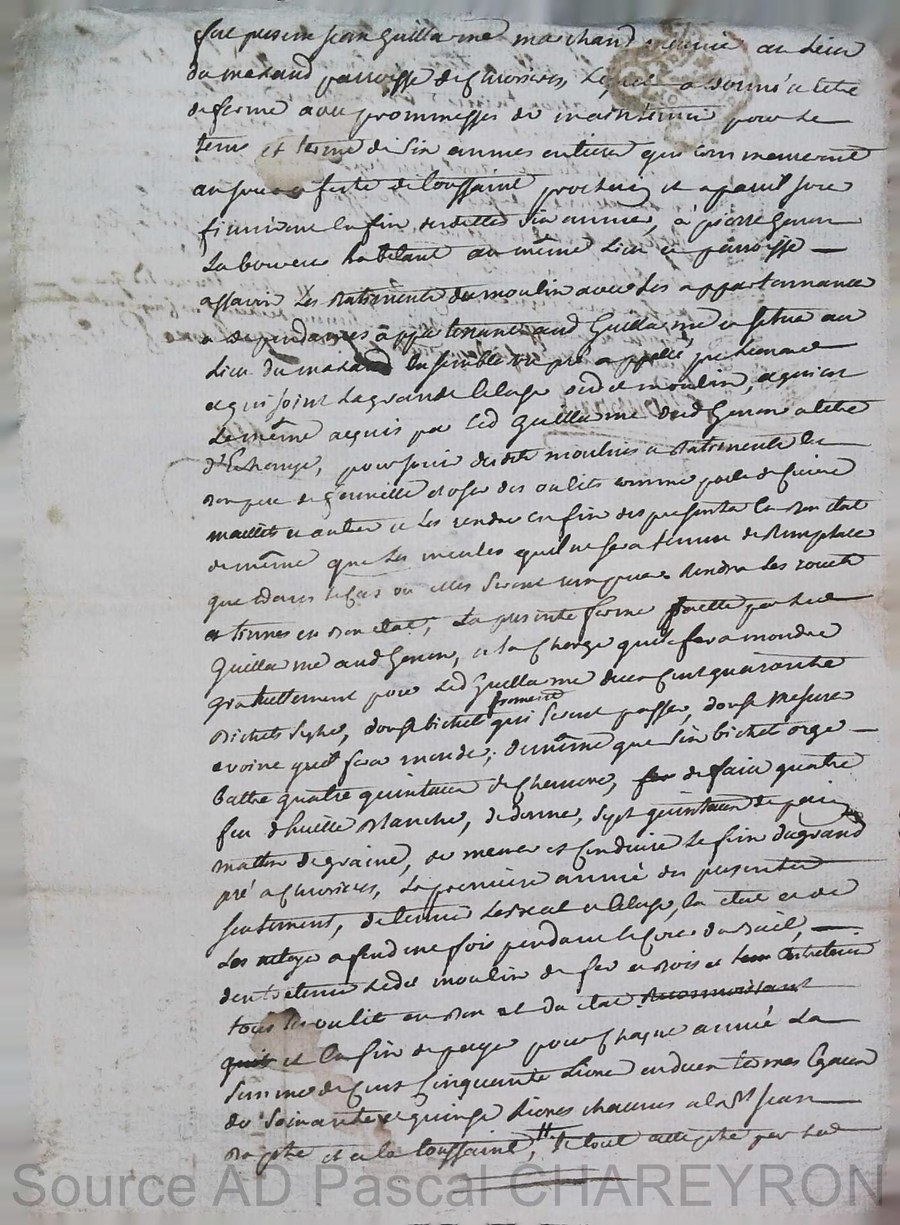 fut present jean guillaume marchand au lieu
du mazaud parroisse de lequel a donné a titre
de ferme avec prommesses de maintenir pour le
tems et terme de six annes entiere qui commenceront
au jour et feste de toussaint prochain et a pareil jour
finiront en fin desdittes six année, à pierre genon
laboureur habitant au même lieu et parroisse
assavoir les batiments du moulin avec les appartenance
et dependances appartenant aud guillaume et situé au
lieu du mazaud ensemble un pré appellé
et qui joint la grande leluse dud moulin, et qui est
le même acquis par led guillaume dud genon a titre
d'echange, pour jouir desdits moulins et batiments en
bon pere de famille et user des outils comme
maillets et autre et les rendre en fin des presente en bon etat
de même que les meules quil ne sera tenu de remplacer
que dans le cas ou elles seront rompues rendra les rouets
et en bon etat, la presente ferme faitte par led
guillaume aud genon, a la charge quil fera moudre
gratuittement pour led guillaume cent quarante
bichets seigle, douse bichets froment qui seront passer, douse mesure
avoine quil fera moudre, de même que six bichet orge
battre quatre quintaux de chenvre, de faire quatre
feu d'huille blanche, de donner, sept quintaux de
de graine, de mener et conduire le foin du grand
pré a la premiere année des presentes
seulement, de tenir et leluse, en etat et de
les netoyer a fond une fois pendant le cours du bail,
d'entretenir ledit moulin de fer et bois et entretenir
tous les outils en bon et du etat
et en fin de payer pour chaque année la
somme de cent cinquante livre en deux termes egaux
de soixante et quinze livres chacuns a la st jean
baptiste et a la toussaint, le tout accepté par led
Source AD Pascal CHAREYRON